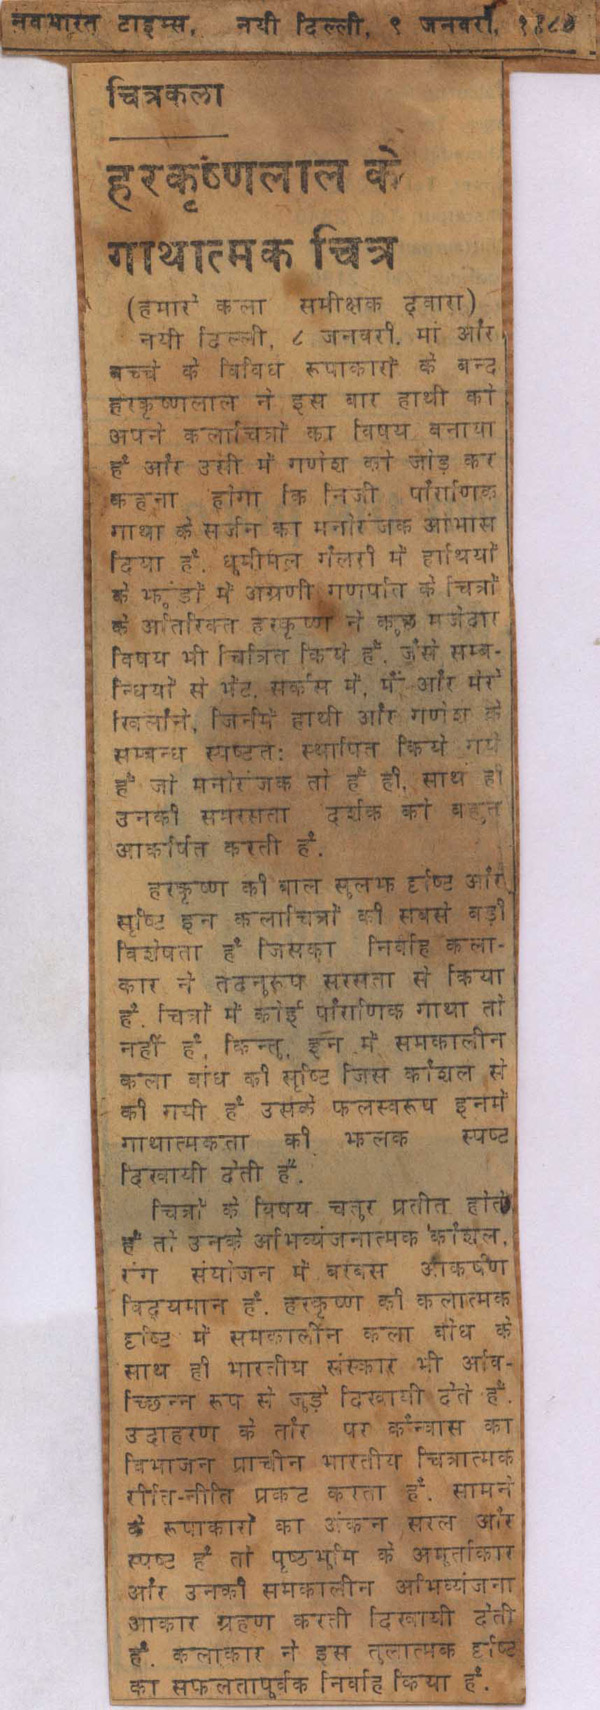 नवभारत टाइम्स, नयी दिल्ली, ९ जनवरी,
चित्रकला
हरकृष्णलाल के
गाथात्मक चित्र
(हमारे कला समीक्षक द्वारा)
नयी दिल्ली, ८ जनवरी. मां और
बच्चे के विविध रूपाकारों के बन्द
हरकृष्णलाल ने इस बार हाथी को
अपने कलाचित्रों का विषय बनाया
है और उसी में गणेश को जोड़ कर
कहना होगा कि निजी पौराणिक
गाथा के सर्जन का मनोरंजक आभास
दिया है. धूमीमल गैलरी में हाथियों
के झुंडों में अग्रणी गणपति के चित्रों
के अतिरिक्त हरकृष्ण ने कुछ मजेदार
विषय भी चित्रित किये हैं. जैसे सम्ब-
न्धियों से भेंट, सर्कस में, मैं और मेरे
खिलौने, जिनमें हाथी और गणेश के
सम्बन्ध स्पष्टतः स्थापित किये गये
हैं जो मनोरंजक तो हैं ही, साथ ही
उनकी समरसता दर्शक को बहुत
आकर्षित करती है.
हरकृष्ण की बाल सुलभ दृष्टि और
सृष्टि इन कलाचित्रों की सबसे बड़ी
विशेषता है जिसका निर्वाह कला-
कार ने तदनुरूप सरसता से किया
है. चित्रों में कोई पौराणिक गाथा तो
नहीं है, किन्तु, इन में समकालीन
कला बोध की सृष्टि जिस कौशल से
की गयी है उसके फलस्वरूप इनमें
गाथात्मकता की झलक स्पष्ट
दिखायी देती है.
चित्रों के विषय चतुर प्रतीत होते
हैं तो उनके अभिव्यंजनात्मक कौशल,
रंग संयोजन में बरबस आकर्षण
विद्यमान है. हरकृष्ण की कलात्मक
दृष्टि में समकालीन कला बोध के
साथ ही भारतीय संस्कार भी अवि-
च्छिन्न रूप से जुड़े दिखायी देते हैं.
उदाहरण के तौर पर कैन्वास का
विभाजन प्राचीन भारतीय चित्रात्मक
रीति-नीति प्रकट करता है. सामने
के रूपाकारों का अंकन सरल और
स्पष्ट है तो पृष्ठभूमि के अमूर्ताकार
और उनकी समकालीन अभिव्यंजना
आकार ग्रहण करती दिखायी देती
है. कलाकार ने इस तुलात्मक दृष्टि
का सफलतापूर्वक निर्वाह किया है.